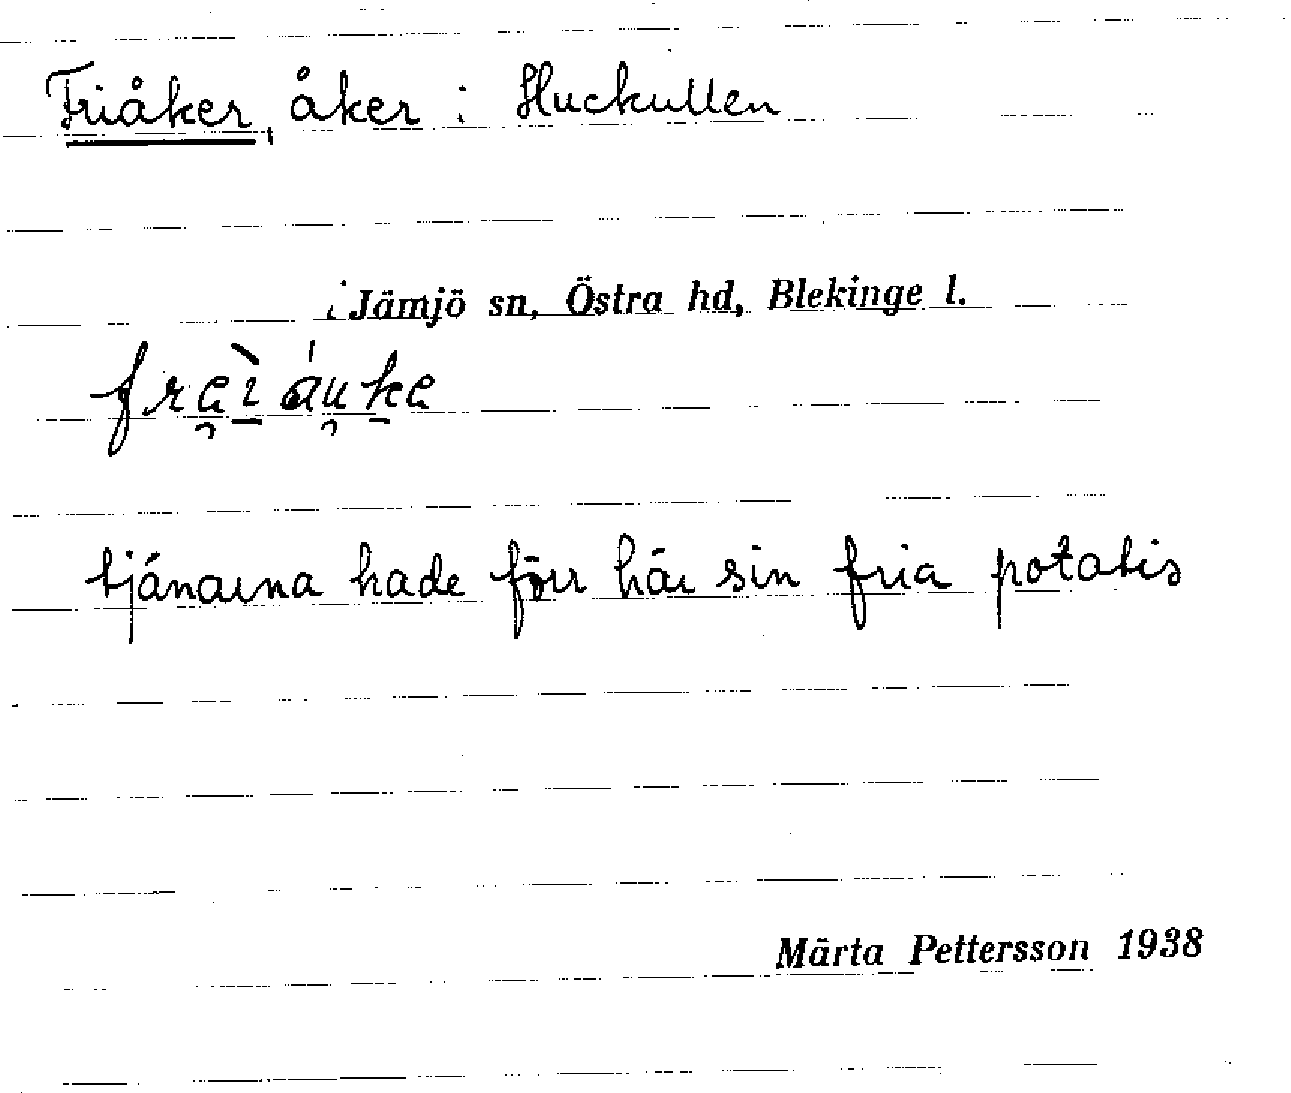 Friåker, åker i Huckullen
i Jämjö sn, Östra hd, Blekinge l.
tjänarna hade förr här sin fria potatis
Märta Pettersson 1938